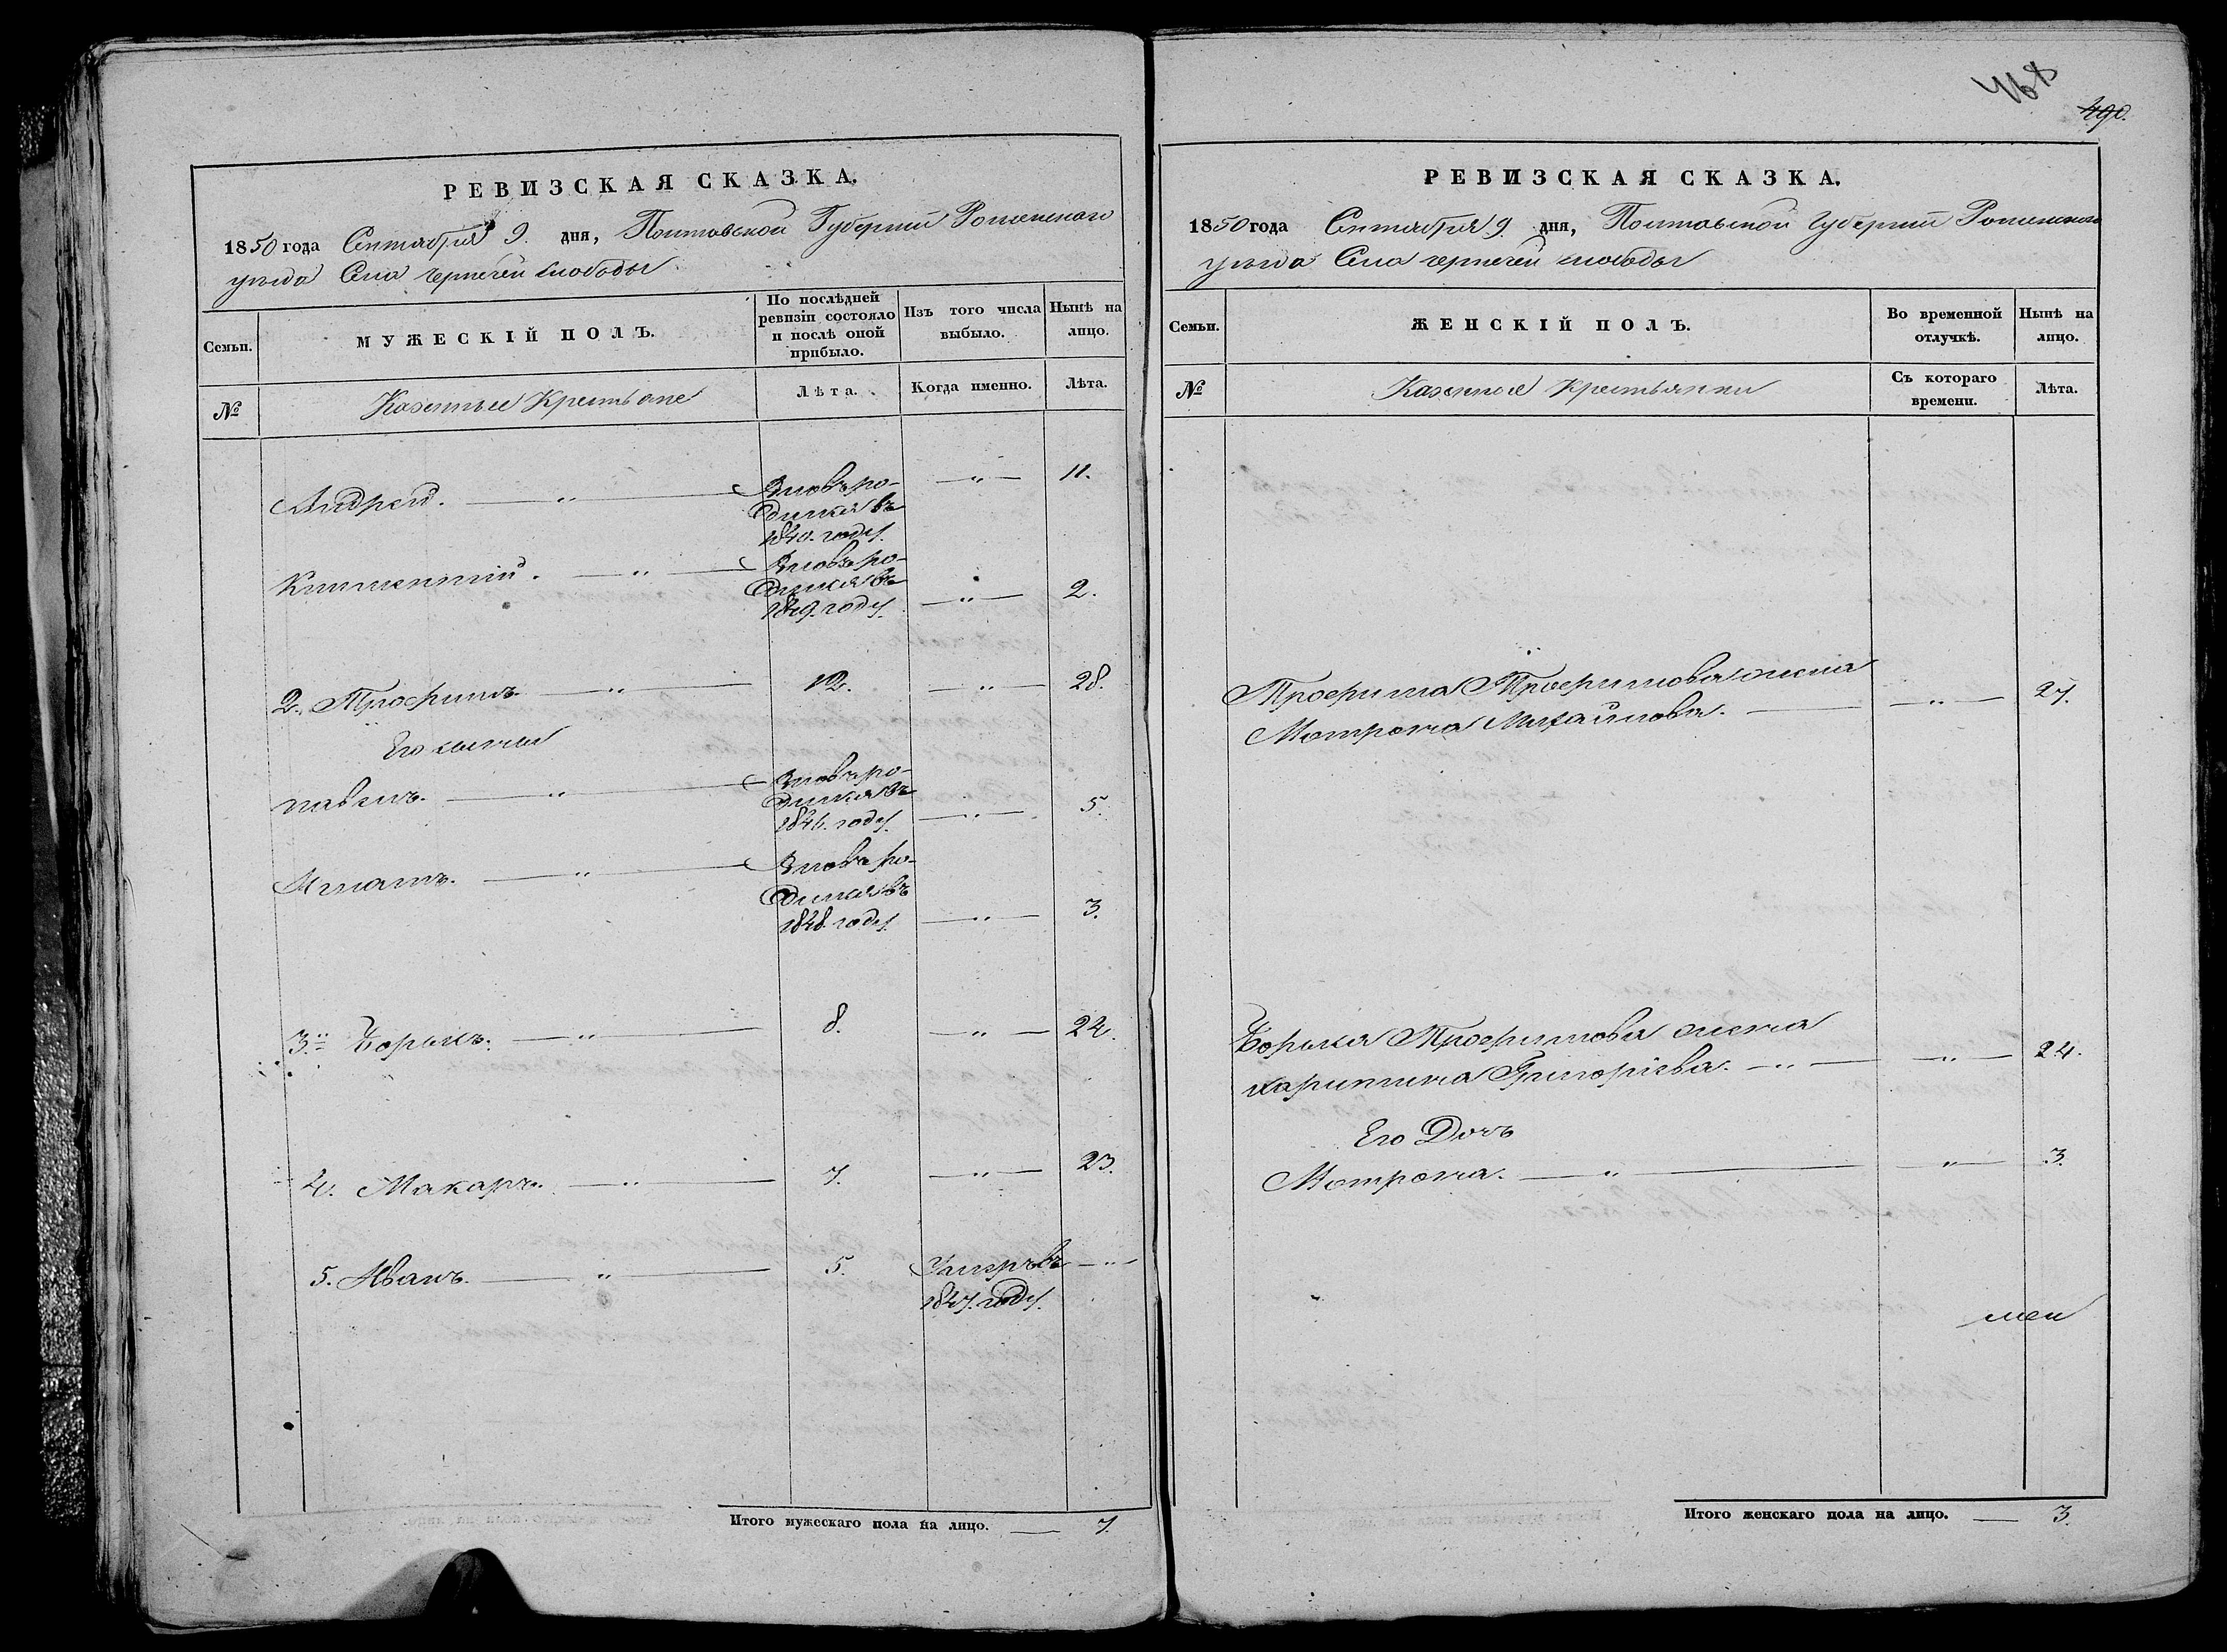 РЕВИЗСКАЯ СКАЗКА.
1850 года Сентября 9. дня, Полтавской Губернии Роменскаго
уезда Села чернечей слободы
Семьи.
МУЖЕСКІЙ ПОЛЪ.
По послѣдней
ревизіи состояло
и послѣ оной
прибыло.
Изъ того числа
выбыло.
Нынѣ на
лицо.
№
Казенные Крестьяне
Лѣта.
Когда именно.
Лѣта.
Андрей. — " — Вновь ро- — " — 11.
дился въ
1840. году.
Климентий. — " — Вновь ро-
дился въ
1849. году. — " — 2.
2. Трофимъ. — " — 12. — " — 28.
Его сыновья
павелъ. — " — Вновь ро-
дился въ
1846. году. — " — 5.
Игнатъ. — " — Вновь ро-
дился въ
1848. году. — " — 3.
3. Борисъ. — " — 8. — " — 24.
4. Макаръ. — " — 7. — " — 23.
5. Иванъ. — " — 5. Умеръ въ — " —
1847. году.
Итого мужескаго пола на лицо. — 7.
490.
РЕВИЗСКАЯ СКАЗКА.
1850 года Сентября 9. дня, Полтавской губернии Роменскаго
уезда Села чернечей слободы
Семьи.
ЖЕНСКІЙ ПОЛЪ.
Во временной
отлучкѣ.
Нынѣ на
лицо.
№
Казенные крестьянки
Съ котораго
времени.
Лѣта.
Трофима Трофимова жена
Мотрона Михайлова. — " — 27.
Бориса Трофимова жена
харитина Григорьева. — " — " — 24.
Его Дочь
Мотрона. — " — " — 3.
Итого женскаго пола на лицо. — 3.